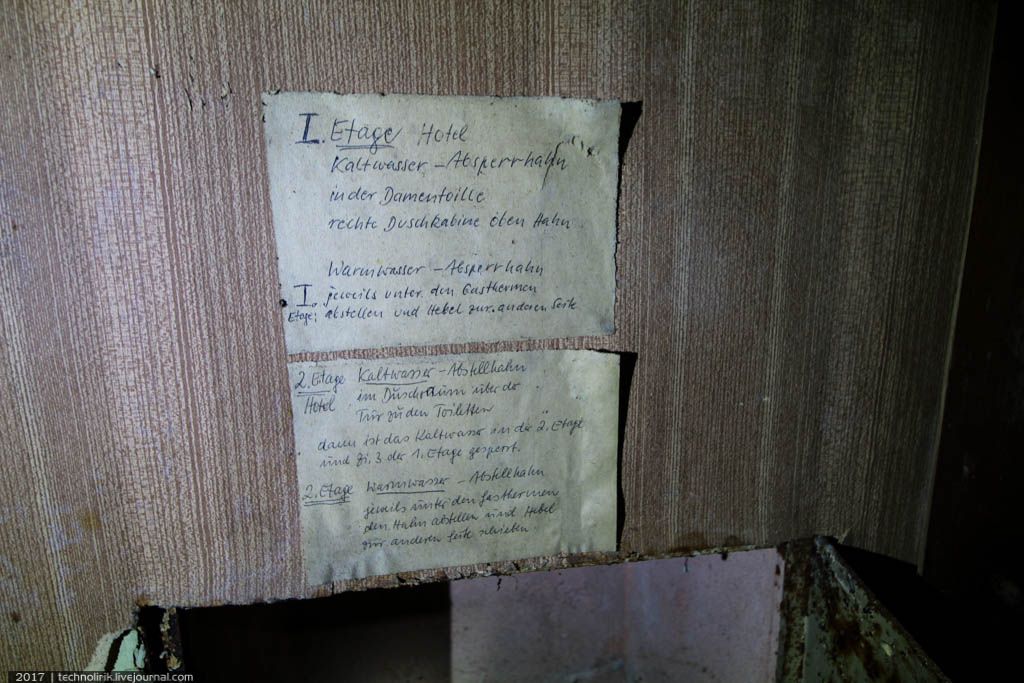 I. Etage Hotel
Kaltwasser - Absperrhahn
in der Damentoille
rechte Duschkabine oben Hahn
Warmwasser - Absperrhahn
I. jeweils unter den Gasthermen
Etage: abstellen und Hebel zur anderen Seite
2. Etage Kaltwasser - Abstellhahn
Hotel im Duschraum über der
Tür zu den Toiletten
dann ist das Kaltwasser in der 2. Etage
und Zi. 3 der 1. Etage gesperrt.
2. Etage Warmwasser - Abstellhahn
jeweils unter den Gasthermen
den Hahn abstellen und Hebel
zur anderen Seite schieben.
2017 | technolirik.livejournal.com